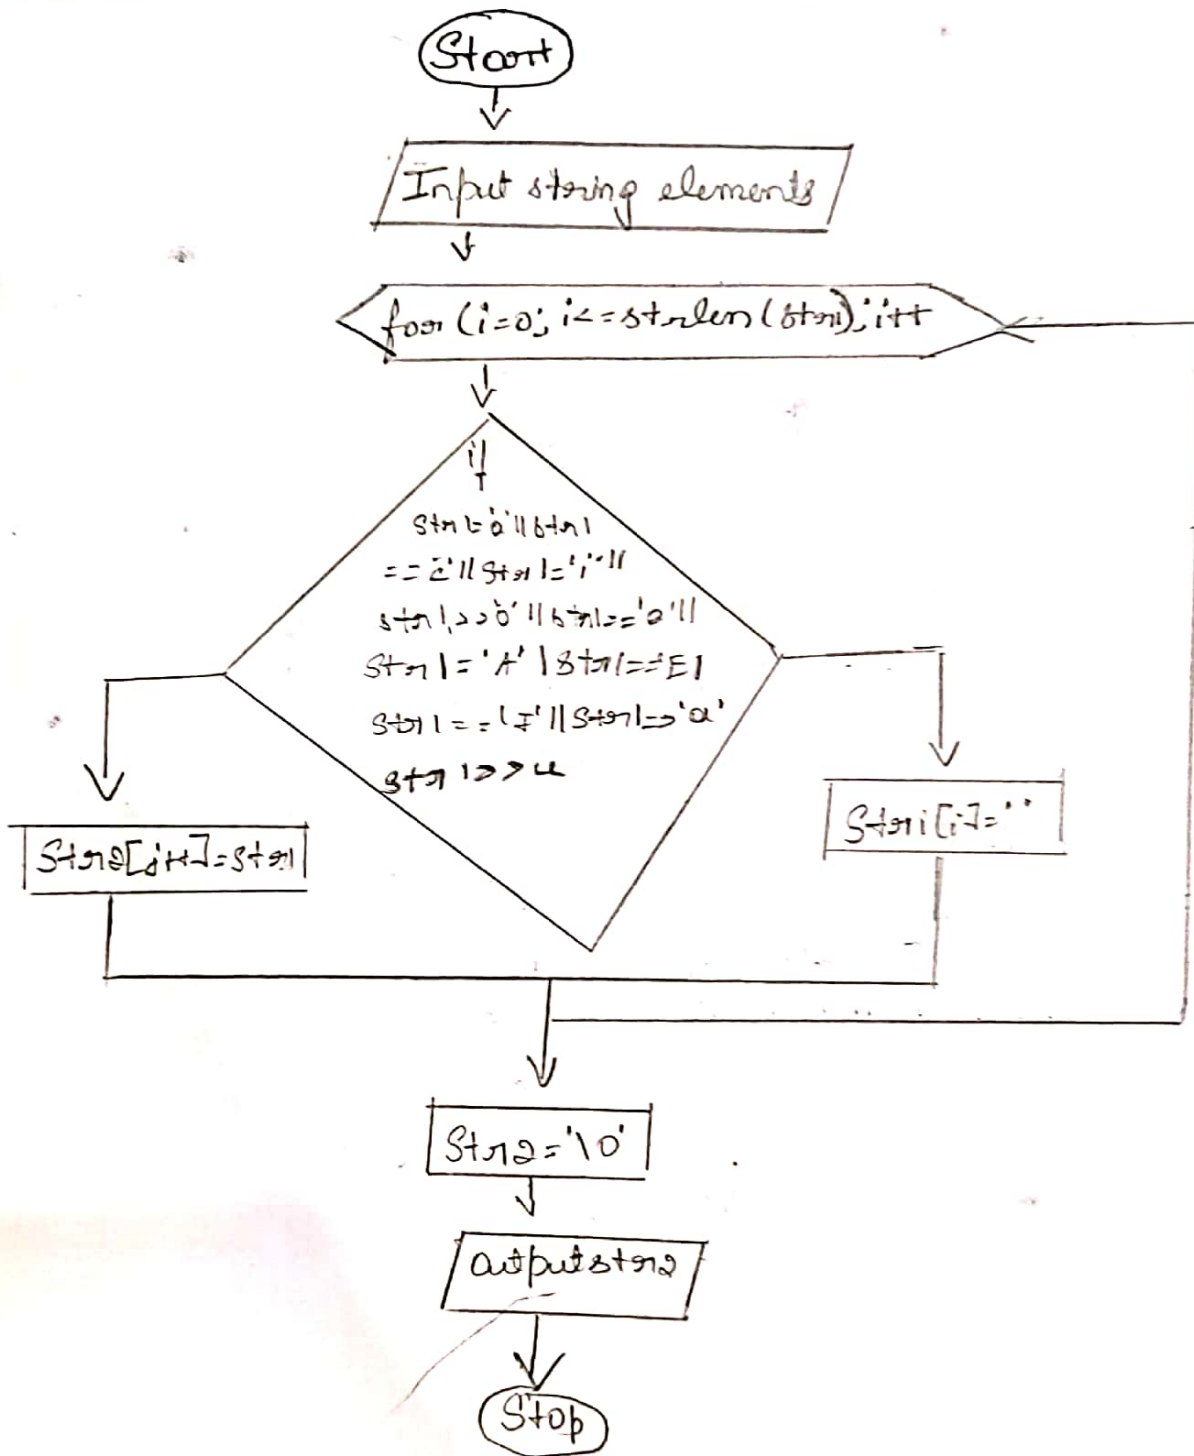 Start
Input string elements
for (i=0; i<=strlen(str1); i++
if
str1='a'||str1
=='e'||str1='i'||
str1>>'o'||str1=='o'||
str1='A'|str1=='E|
str1=='I'||str1=>'a'
str1>>u
Str2[j++]=str1
Str1[i]=' '
Str2='\0'
output str2
Stop